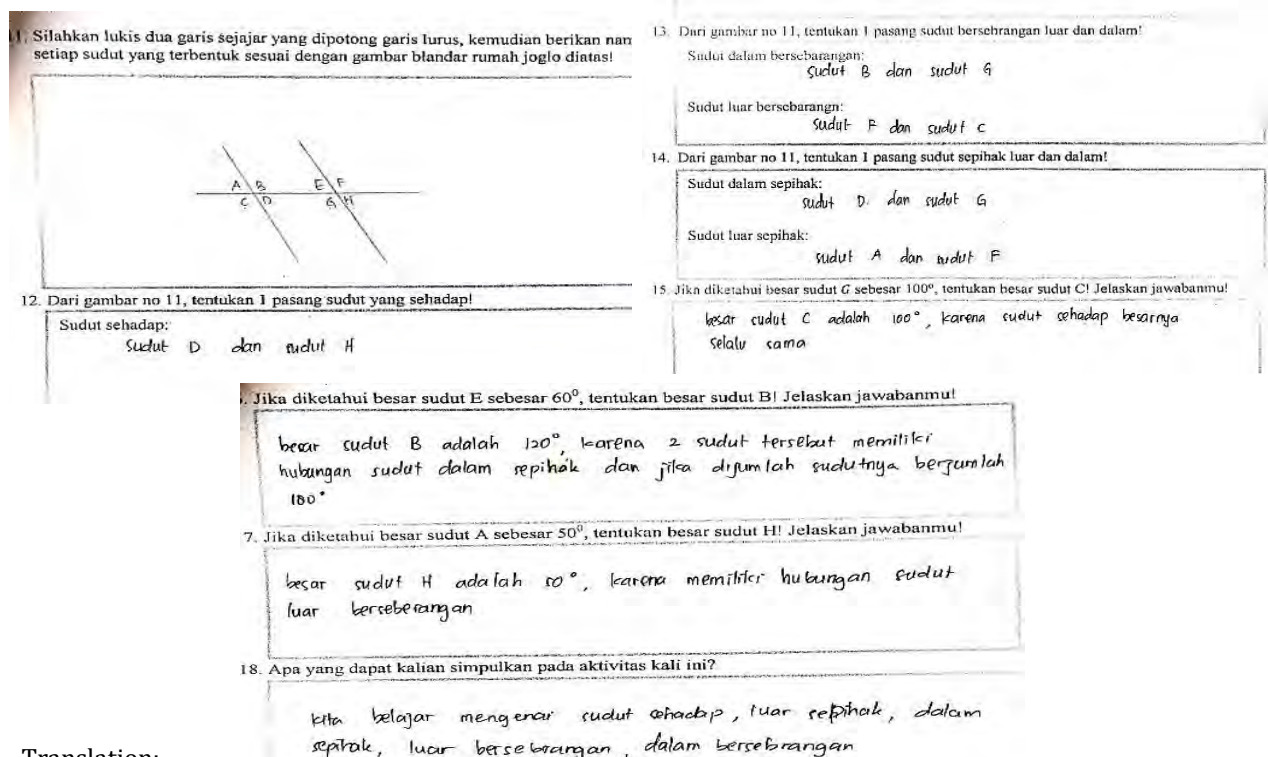 11. Silahkan lukis dua garis sejajar yang dipotong garis lurus, kemudian berikan nan
setiap sudut yang terbentuk sesuai dengan gambar blandar rumah joglo diatas!
A B E F
C D G H
12. Dari gambar no 11, tentukan 1 pasang sudut yang sehadap!
Sudut sehadap:
Sudut D dan sudut H
13. Dari gambar no 11, tentukan 1 pasang sudut bersebrangan luar dan dalam!
Sudut dalam bersebarangan:
Sudut B dan sudut G
Sudut luar bersebarangn:
Sudut F dan sudut C
14. Dari gambar no 11, tentukan 1 pasang sudut sepihak luar dan dalam!
Sudut dalam sepihak:
sudut D. dan sudut G
Sudut luar sepihak:
sudut A dan sudut F
15. Jika diketahui besar sudut G sebesar 100⁰, tentukan besar sudut C! Jelaskan jawabanmu!
besar sudut C adalah 100°, karena sudut sehadap besarnya
selalu sama
. Jika diketahui besar sudut E sebesar 60⁰, tentukan besar sudut B! Jelaskan jawabanmu!
besar sudut B adalah 120°, karena 2 sudut tersebut memiliki
hubungan sudut dalam sepihak dan jika dijumlah sudutnya berjumlah
180°
7. Jika diketahui besar sudut A sebesar 50⁰, tentukan besar sudut H! Jelaskan jawabanmu!
besar sudut H adalah 50°, karena memiliki hubungan sudut
luar berseberangan
18. Apa yang dapat kalian simpulkan pada aktivitas kali ini?
kita belajar mengenai sudut sehadap, luar sepihak, dalam
sepihak, luar bersebrangan, dalam bersebrangan
Translation: